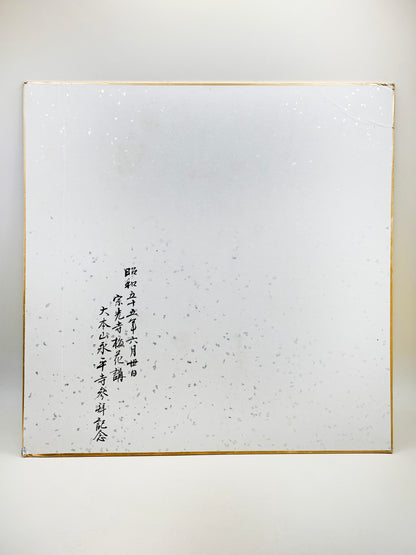 昭和五十五年六月卅日
宗光寺梅花講
大本山永平寺参拝記念